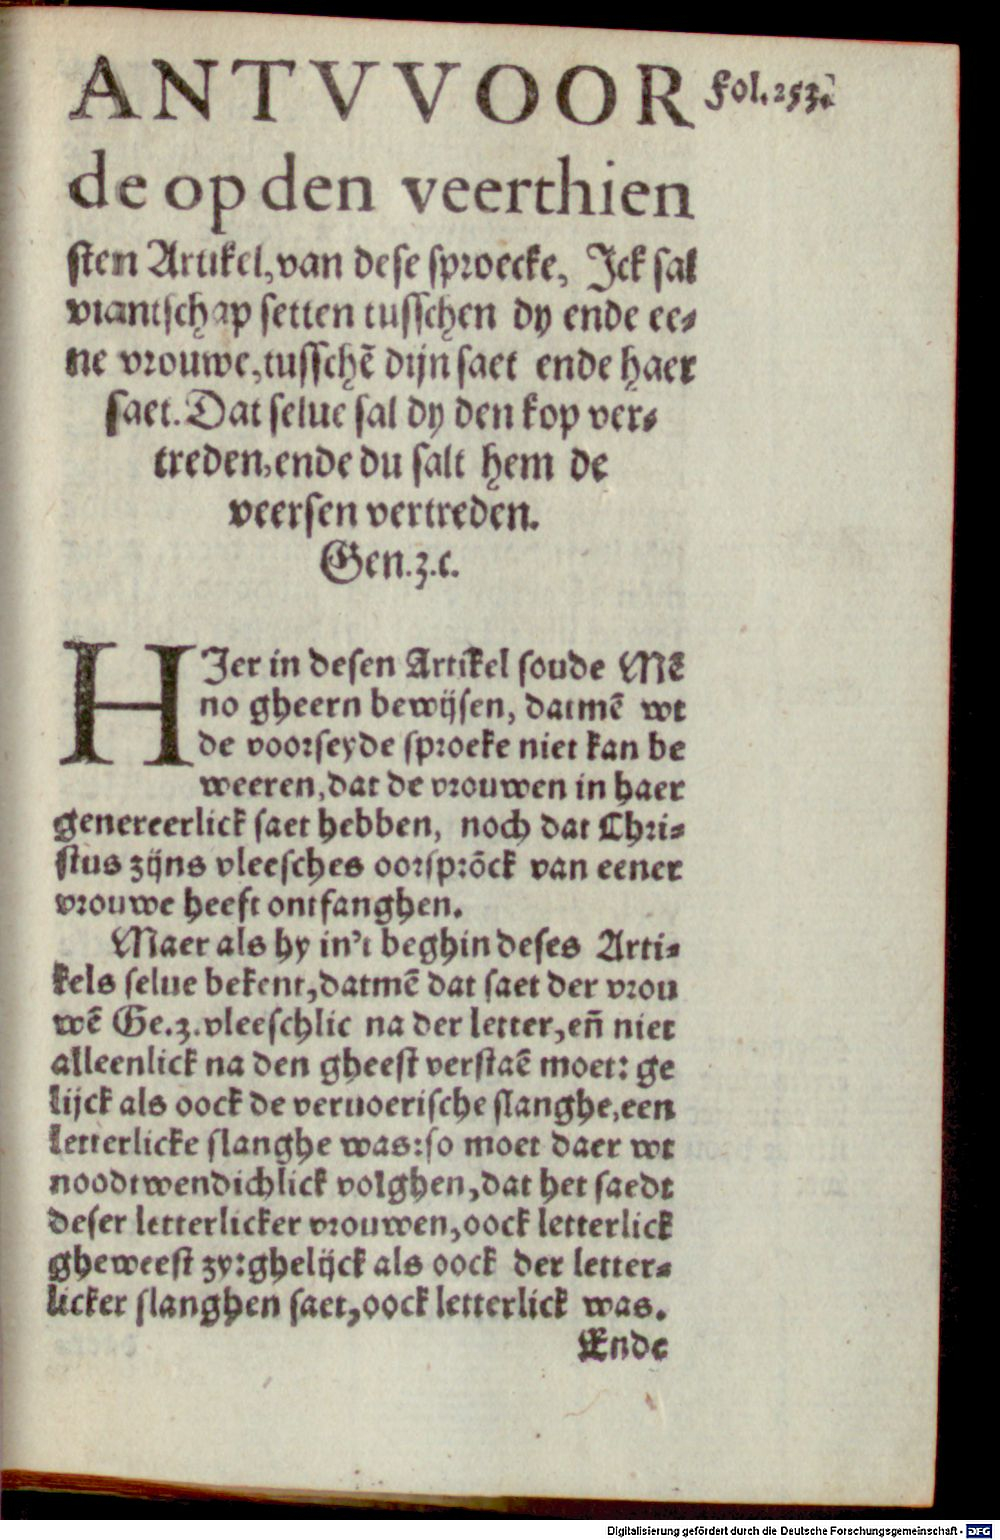 ANTVVOOR Fol. 253.
de op den veerthien
sten Artikel, van dese sproecke, Ick sal
viantschap setten tusschen dy ende ee-
ne vrouwe, tusschē dijn saet ende haer
saet. Dat selue sal dy den kop ver-
treden, ende du salt hem de
veersen vertreden.
Gen. 3. c.
HIer in desen Artikel soude Mē
no gheern bewijsen, datmē wt
de voorseyde sproeke niet kan be
weeren, dat de vrouwen in haer
genereerlick saet hebben, noch dat Chri-
stus zijns vleesches oorsprōck van eener
vrouwe heeft ontfanghen.
Maer als hy in't beghin deses Arti-
kels selue bekent, datmē dat saet der vrou
wē Ge. 3. vleeschlic na der letter, eñ niet
alleenlick na den gheest verstaē moet: ge
lijck als oock de veruoerische slanghe, een
letterlicke slanghe was: so moet daer wt
noodtwendichlick volghen, dat het saedt
deser letterlicker vrouwen, oock letterlick
gheweest zy: ghelijck als oock der letter-
licker slanghen saet, oock letterlick was.
Ende
Digitalisierung gefördert durch die Deutsche Forschungsgemeinschaft - DFG